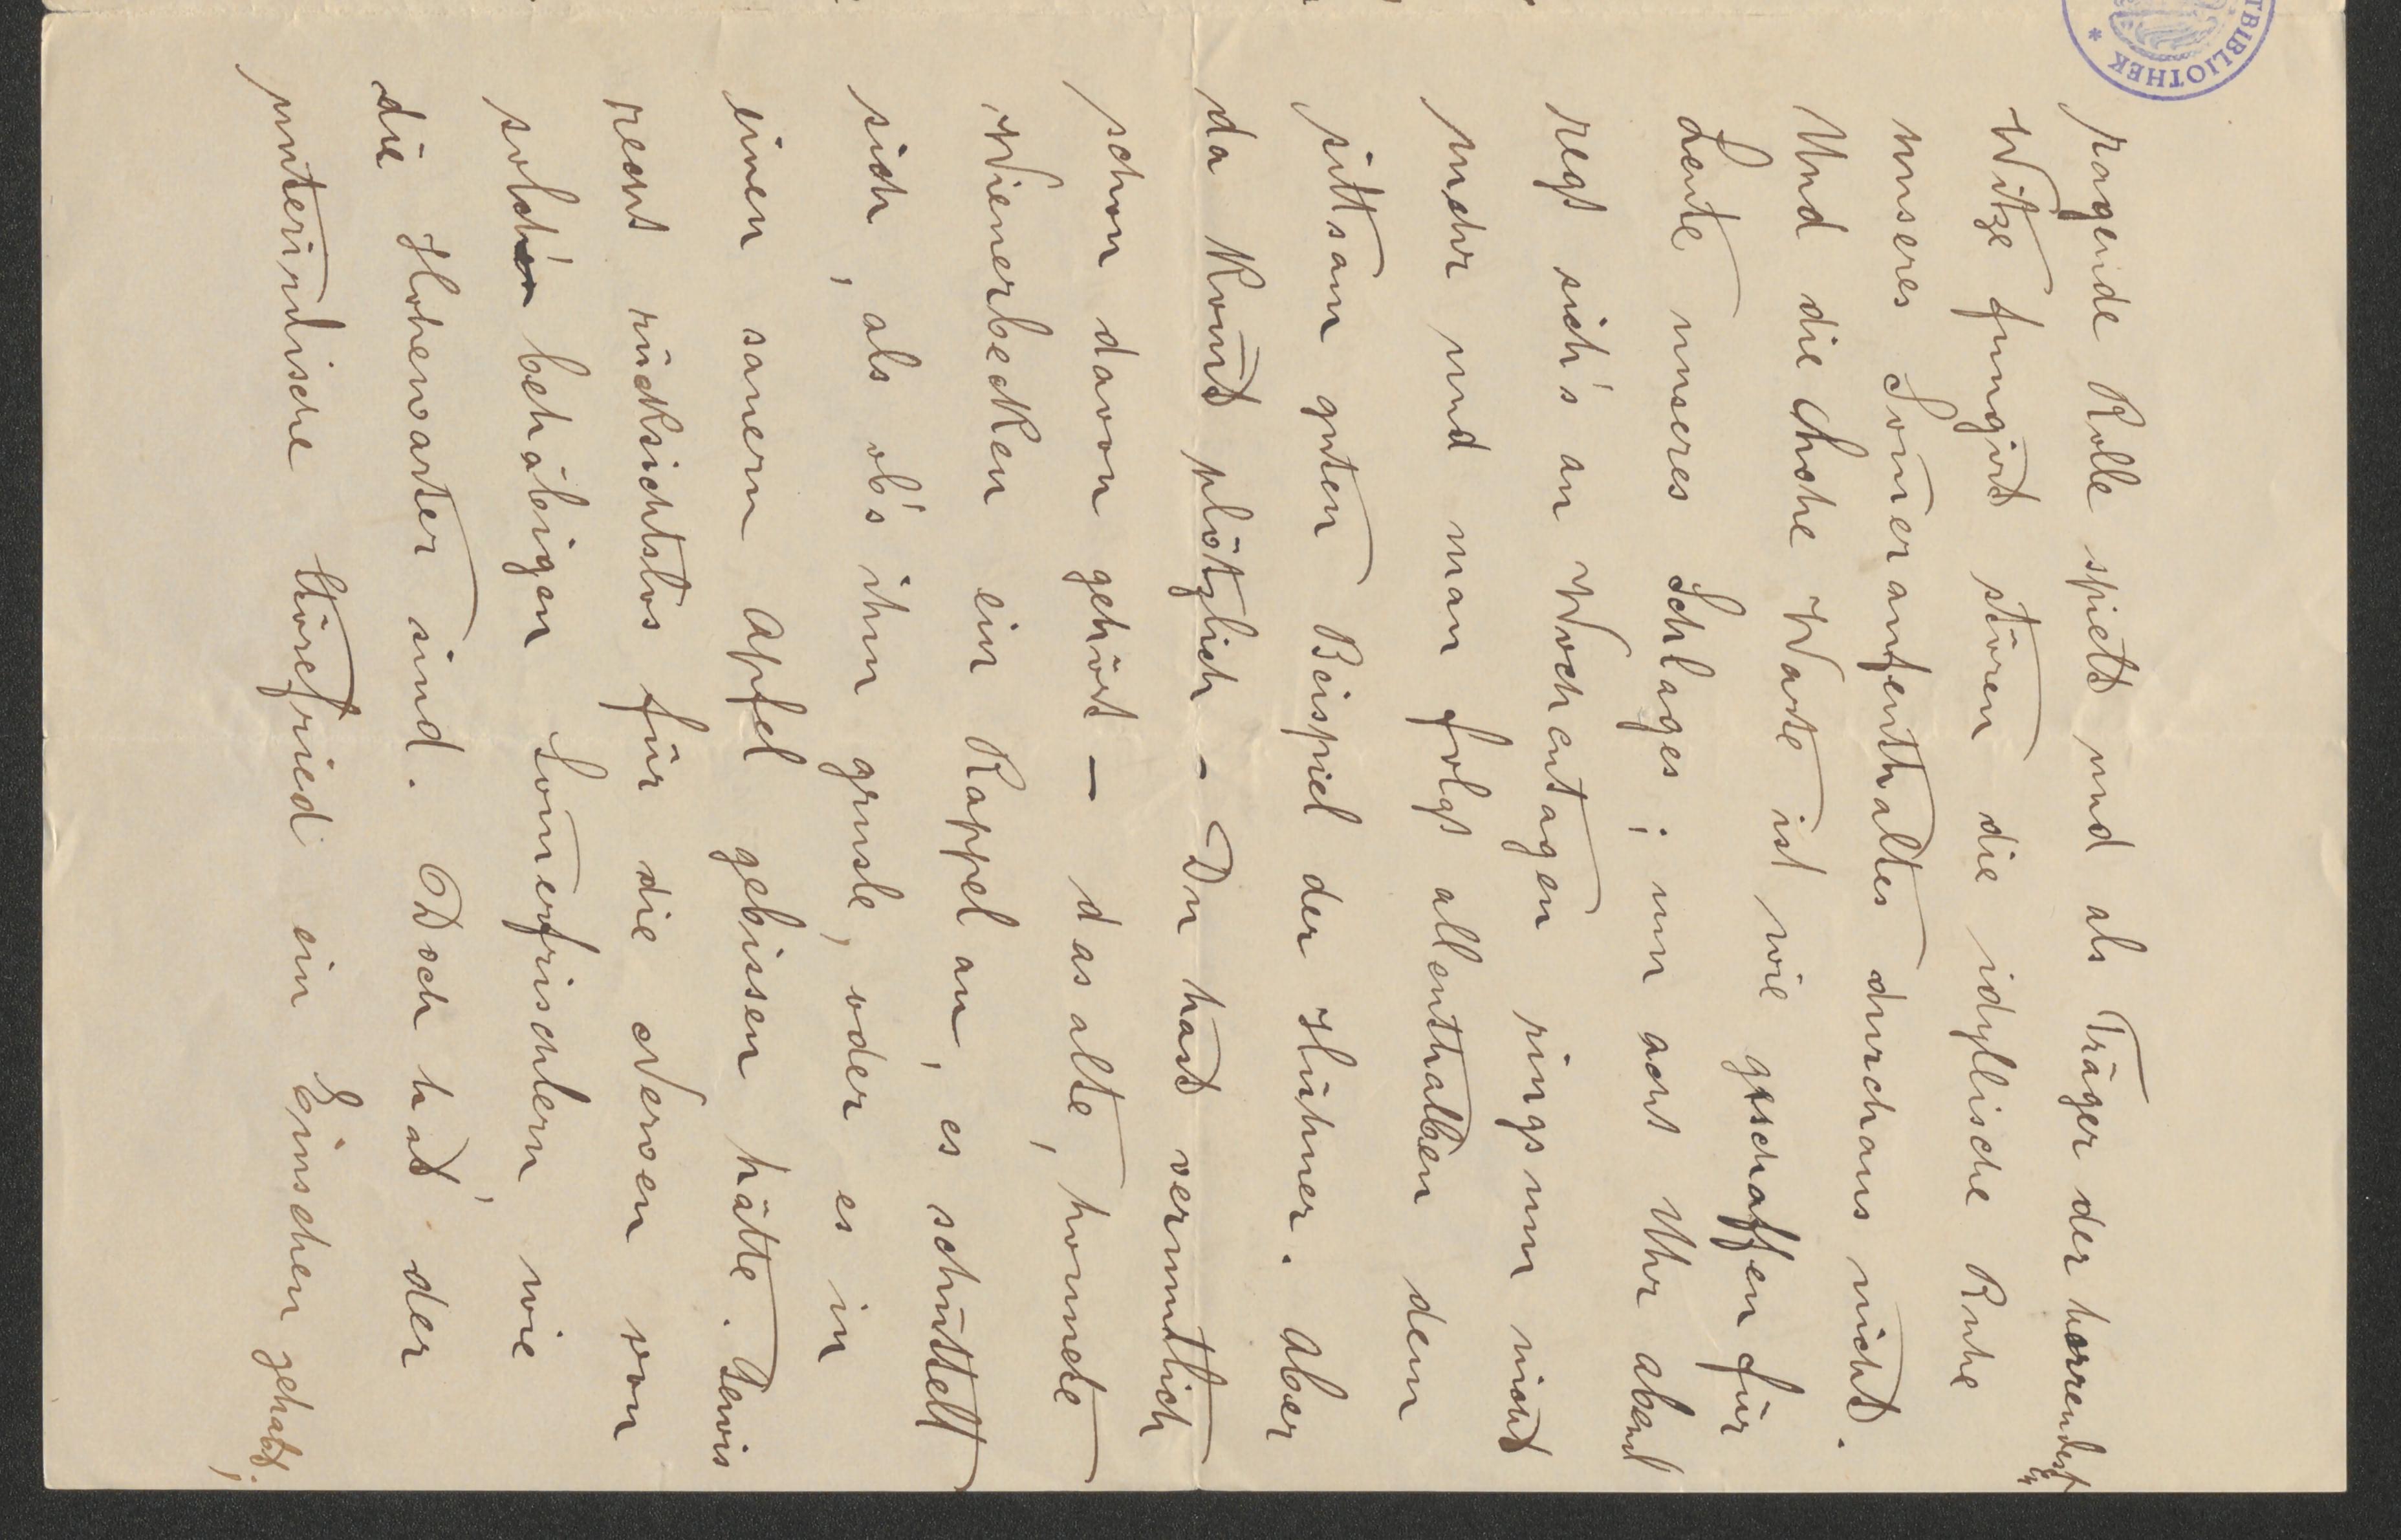 TBIBLIOTHEK *
ragende Rolle spielt und als Träger der horrendesten
Witze fungirt stören die idyllische Ruhe
unseres Som̄eraufenthaltes durchaus nicht.
Und die Hohe Warte ist wie geschaffen für
Leute unseres Schlages; um acht Uhr abend
regt sich's an Wochentagen rings um nicht
mehr und man folgt allenthalben dem
sittsam guten Beispiel der Hühner. Aber
da kom̄t plötzlich – Du hast vermuthlich
schon davon gehört – das alte, honnete
Wienerbecken ein Rappel an, es schüttelt
sich, als ob's ihm grusle, oder es in
einen sauern Apfel gebissen hätte. Gewis
recht rücksichtslos für die Nerven von
solch' behäbigen Som̄erfrischlern, wie
die Hohenwarter sind. Doch hat der
unterirdische Störefried ein Einsehen gehabt;